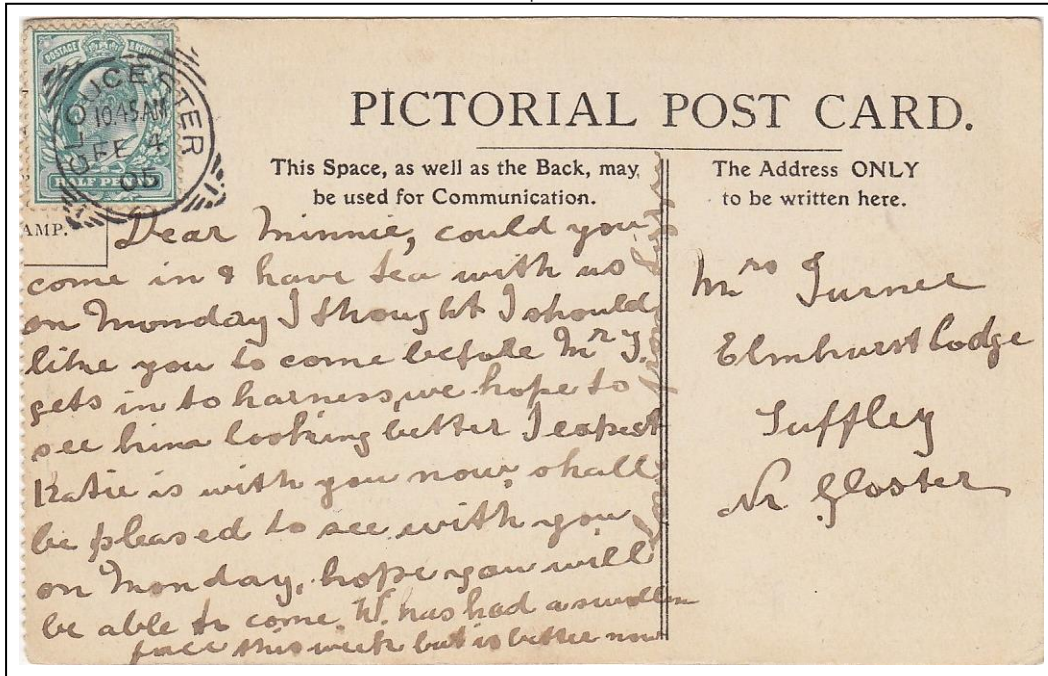 POSTAGE & REVENUE
HALF PENNY
GLOUCESTER
10.45AM
FE 4
05
AMP.
PICTORIAL POST CARD.
This Space, as well as the Back, may
be used for Communication.
The Address ONLY
to be written here.
Dear Minnie, could you
come in & have tea with us
on Monday I thought I should
like you to come before Mr T.
gets in to harness, we hope to
see him looking better I expect
Katie is with you now, shall
be pleased to see with you
on Monday, hope you will
be able to come. W. has had a swollen
face this week but is better now
love from
Mrs Turner
Elmhurst Lodge
Tuffley
Nr Gloster